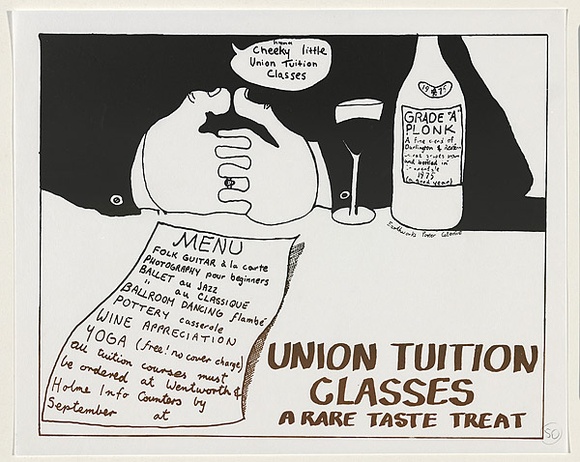 hmmm
Cheeky little
Union Tuition
Classes
1975
GRADE "A"
PLONK
A fine blend of
Darlington & Redfern
and bottled in
1975
(a good year)
MENU
FOLK GUITAR à la carte
PHOTOGRAPHY pour beginners
BALLET au JAZZ
" au CLASSIQUE
BALLROOM DANCING flambé
POTTERY casserole
WINE APPRECIATION
YOGA (free! no cover charge)
all tuition courses must
be ordered at Wentworth &
Holme Info Counters by
September at
UNION TUITION
CLASSES
A RARE TASTE TREAT